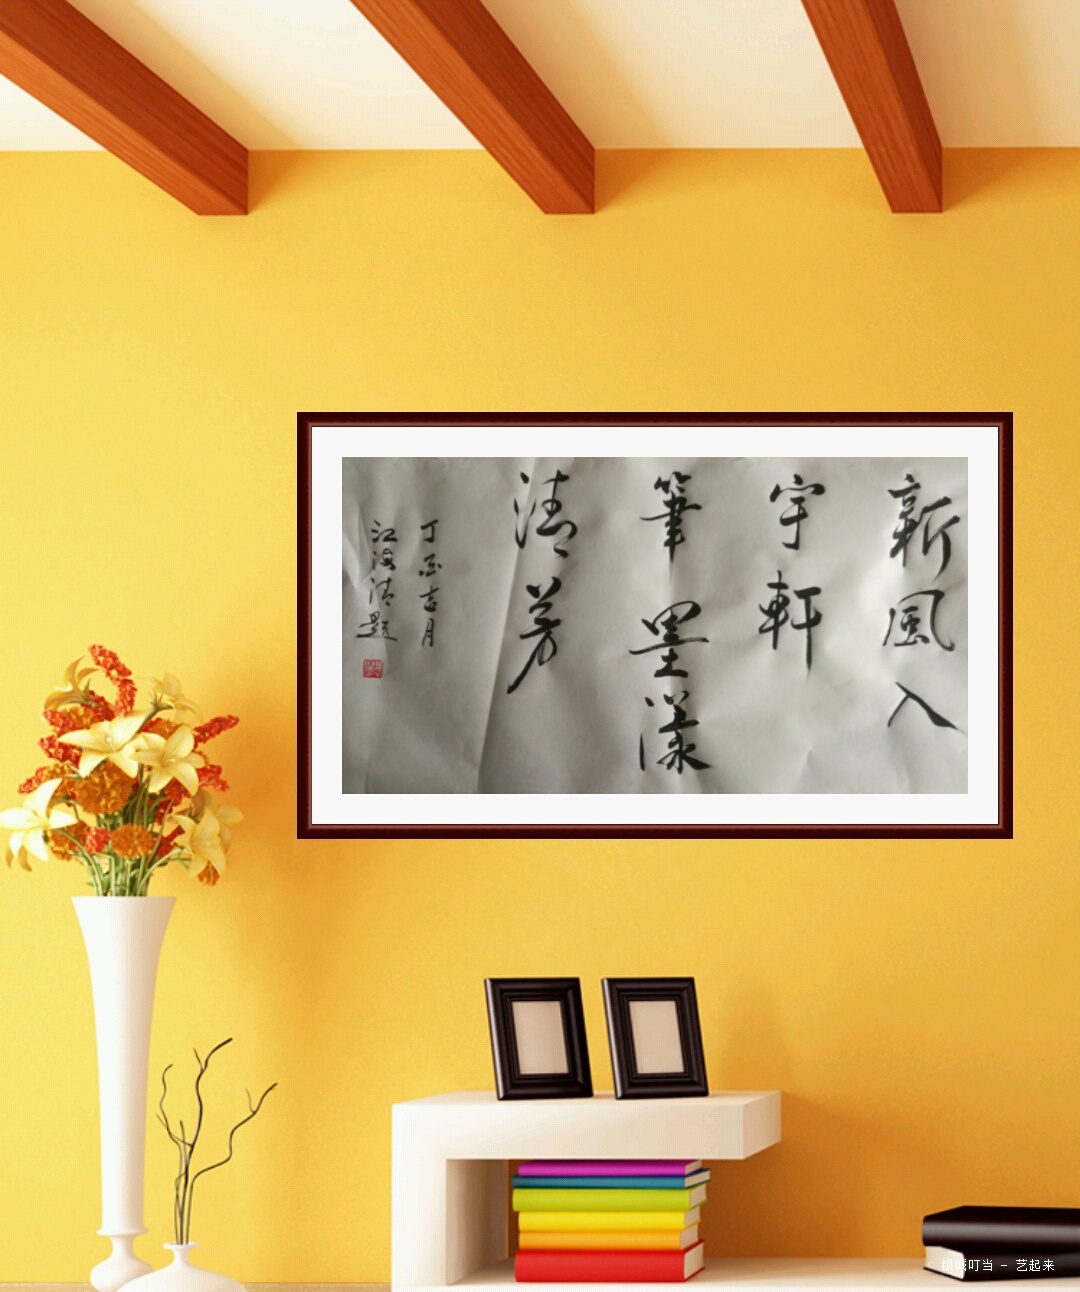 新風入
宇軒
筆墨漾
清芳
丁酉吉月
江海清题
银城叮当 - 艺起来